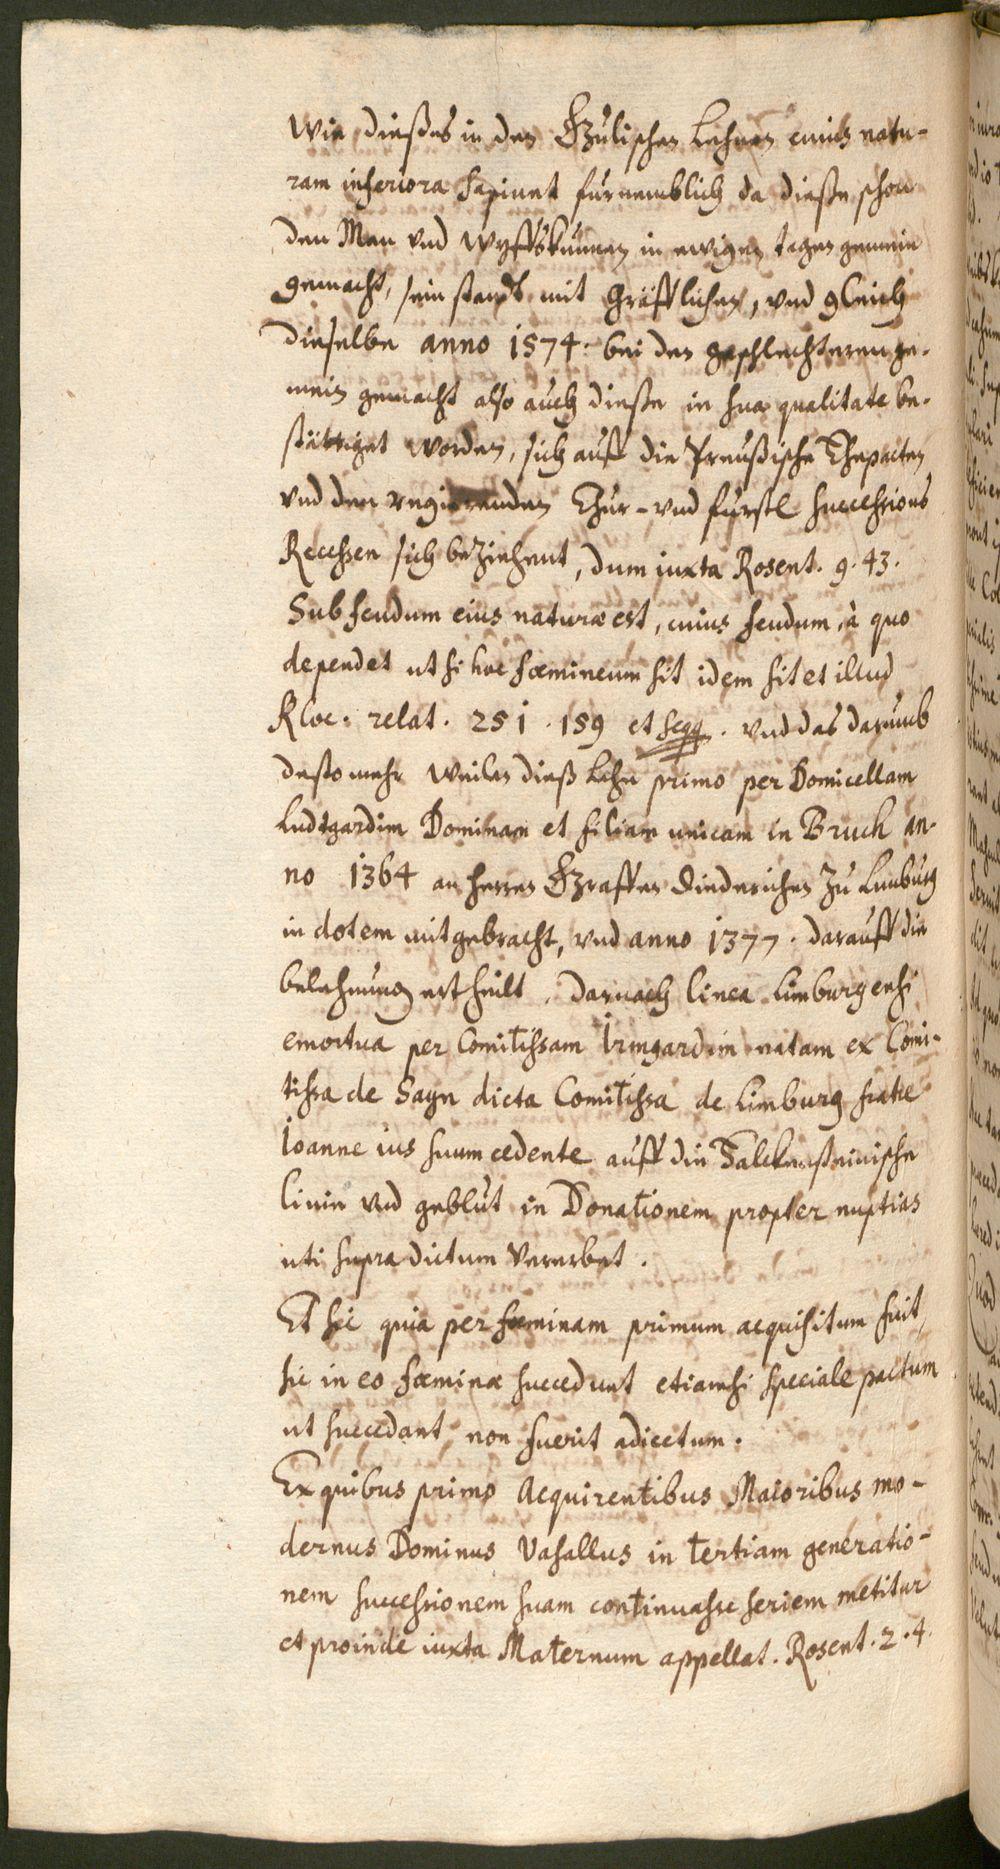 Wie dießes in den Gülischen Lehnen cuius natu-
ram inferiora sapiunt fürnemblich da dieße schon
den Man vnd Wyffskunnen in ewigen tagen gemein
gemacht, sein standt mit Gräfflichen, vnd gleich
dieselbe anno 1574: bei den geschlechteren ge-
mein gemacht also auch dieße in sua qualitate be-
stättiget worden, sich auff die Preußische Ehepacten
vnd den regierenden Chur- vnd fürstl successions
Recessen sich beziehent, dum iuxta Rosent. 9. 43.
Subfeudum eius naturæ est, cuius feudum, à quo
dependet ut si hoc fœmineum sit idem sit et illud
Kloc. relat. 251. 159 et seqq. vnd das darumb
desto mehr weilen dieß Lehn primo per Domicellam
Ludtgardim Dominam et filiam unicam in Bruch an-
no 1364 an herren Graffen Diederichen zu Limburg
in dotem mitgebracht, vnd anno 1377. darauff die
belehnung ertheilt. Darnach linea Limburgensi
emortua per Comitissam Irmgardim natam ex Comi-
tissa de Sayn dicta Comitissa de Limburg fratre
Ioanne ius suum cedente auff die Falckensteinische
linie vnd geblüt in Donationem propter nuptias
uti supra dictum vererbet.
Et sic quia per fœminam primum acquisitum fuit,
sic in eo fœminæ succedunt etiamsi speciale pactum
ut succedant non fuerit adiectum.
Ex quibus primo Acquirentibus Maioribus mo-
dernus Dominus Vasallus in tertiam generatio-
nem successionem suam continuasse seriem metitur
et proinde iuxta Maternum appellat. Rosent. 2. 4.